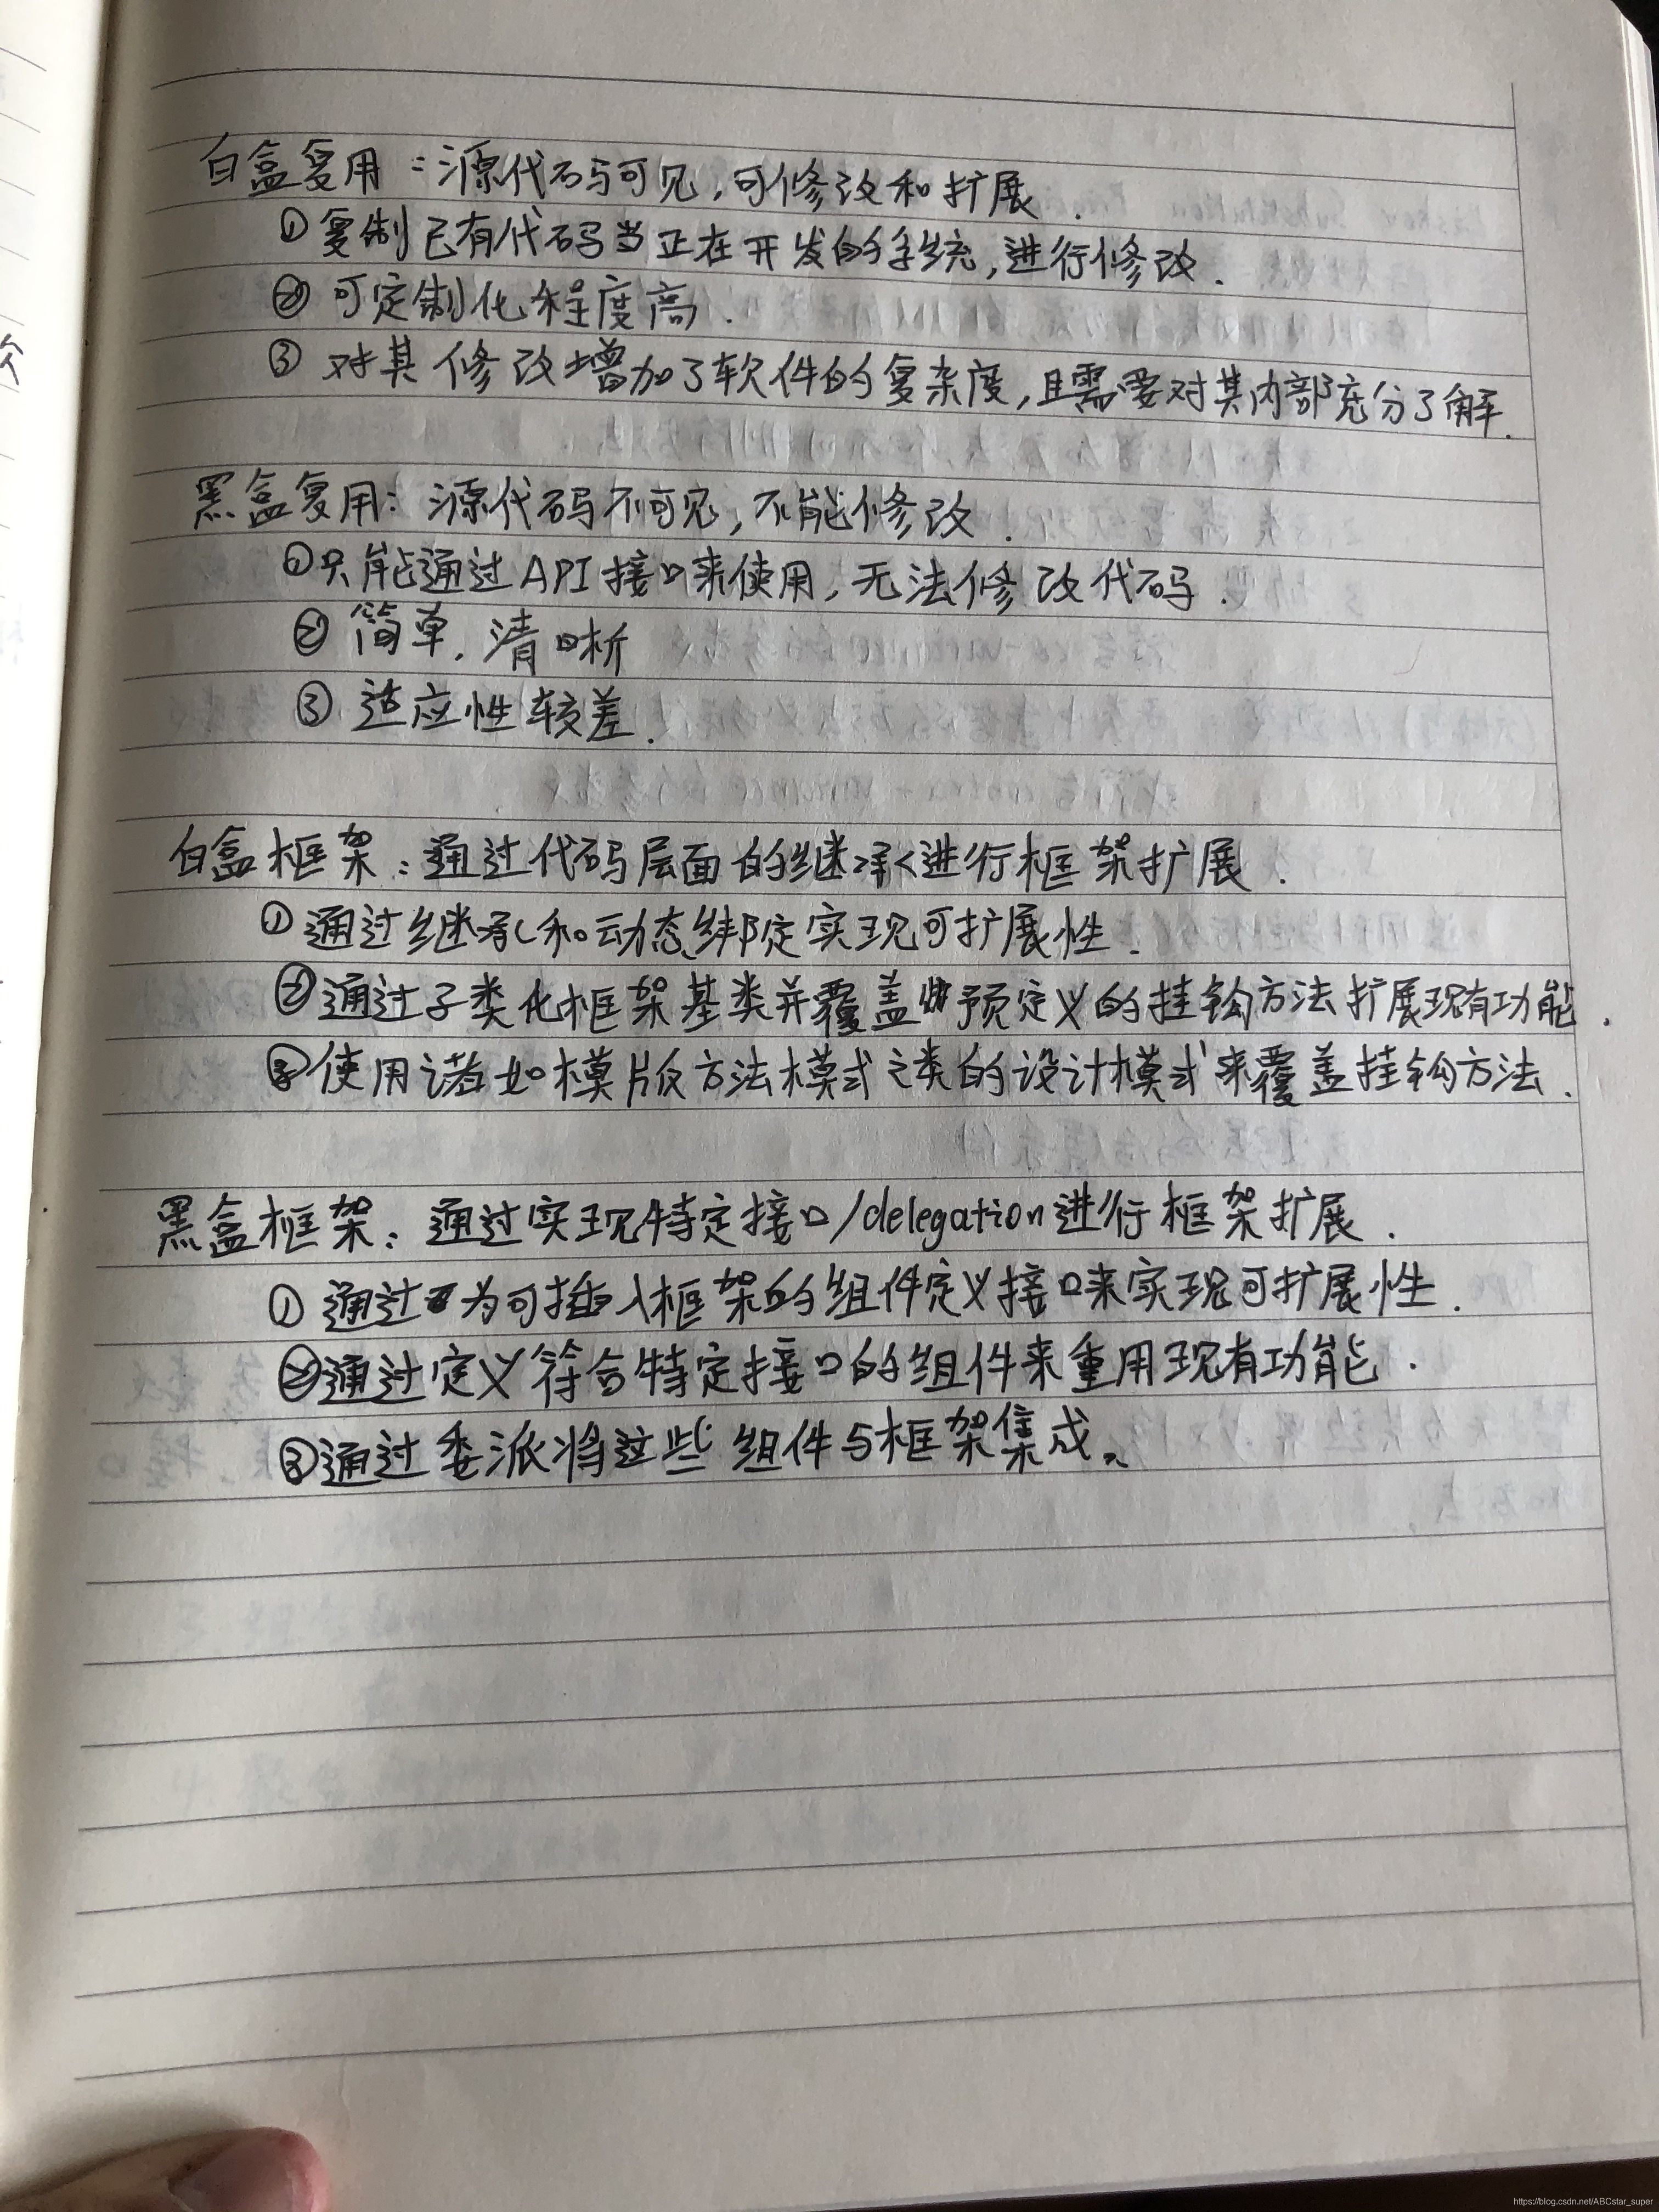 白盒复用：源代码可见,可修改和扩展.
①复制已有代码当正在开发的系统,进行修改.
②可定制化程度高.
③对其修改增加了软件的复杂度,且需要对其内部充分了解.
黑盒复用：源代码不可见,不能修改.
①只能通过API接口来使用,无法修改代码.
②简单,清晰
③适应性较差.
白盒框架：通过代码层面的继承进行框架扩展.
①通过继承和动态绑定实现可扩展性.
②通过子类化框架基类并覆盖预定义的挂钩方法扩展现有功能.
③使用诸如模版方法模式之类的设计模式来覆盖挂钩方法.
黑盒框架：通过实现特定接口/delegation进行框架扩展.
①通过为可插入框架的组件定义接口来实现可扩展性.
②通过定义符合特定接口的组件来重用现有功能.
③通过委派将这些组件与框架集成。
https://blog.csdn.net/ABCstar_super